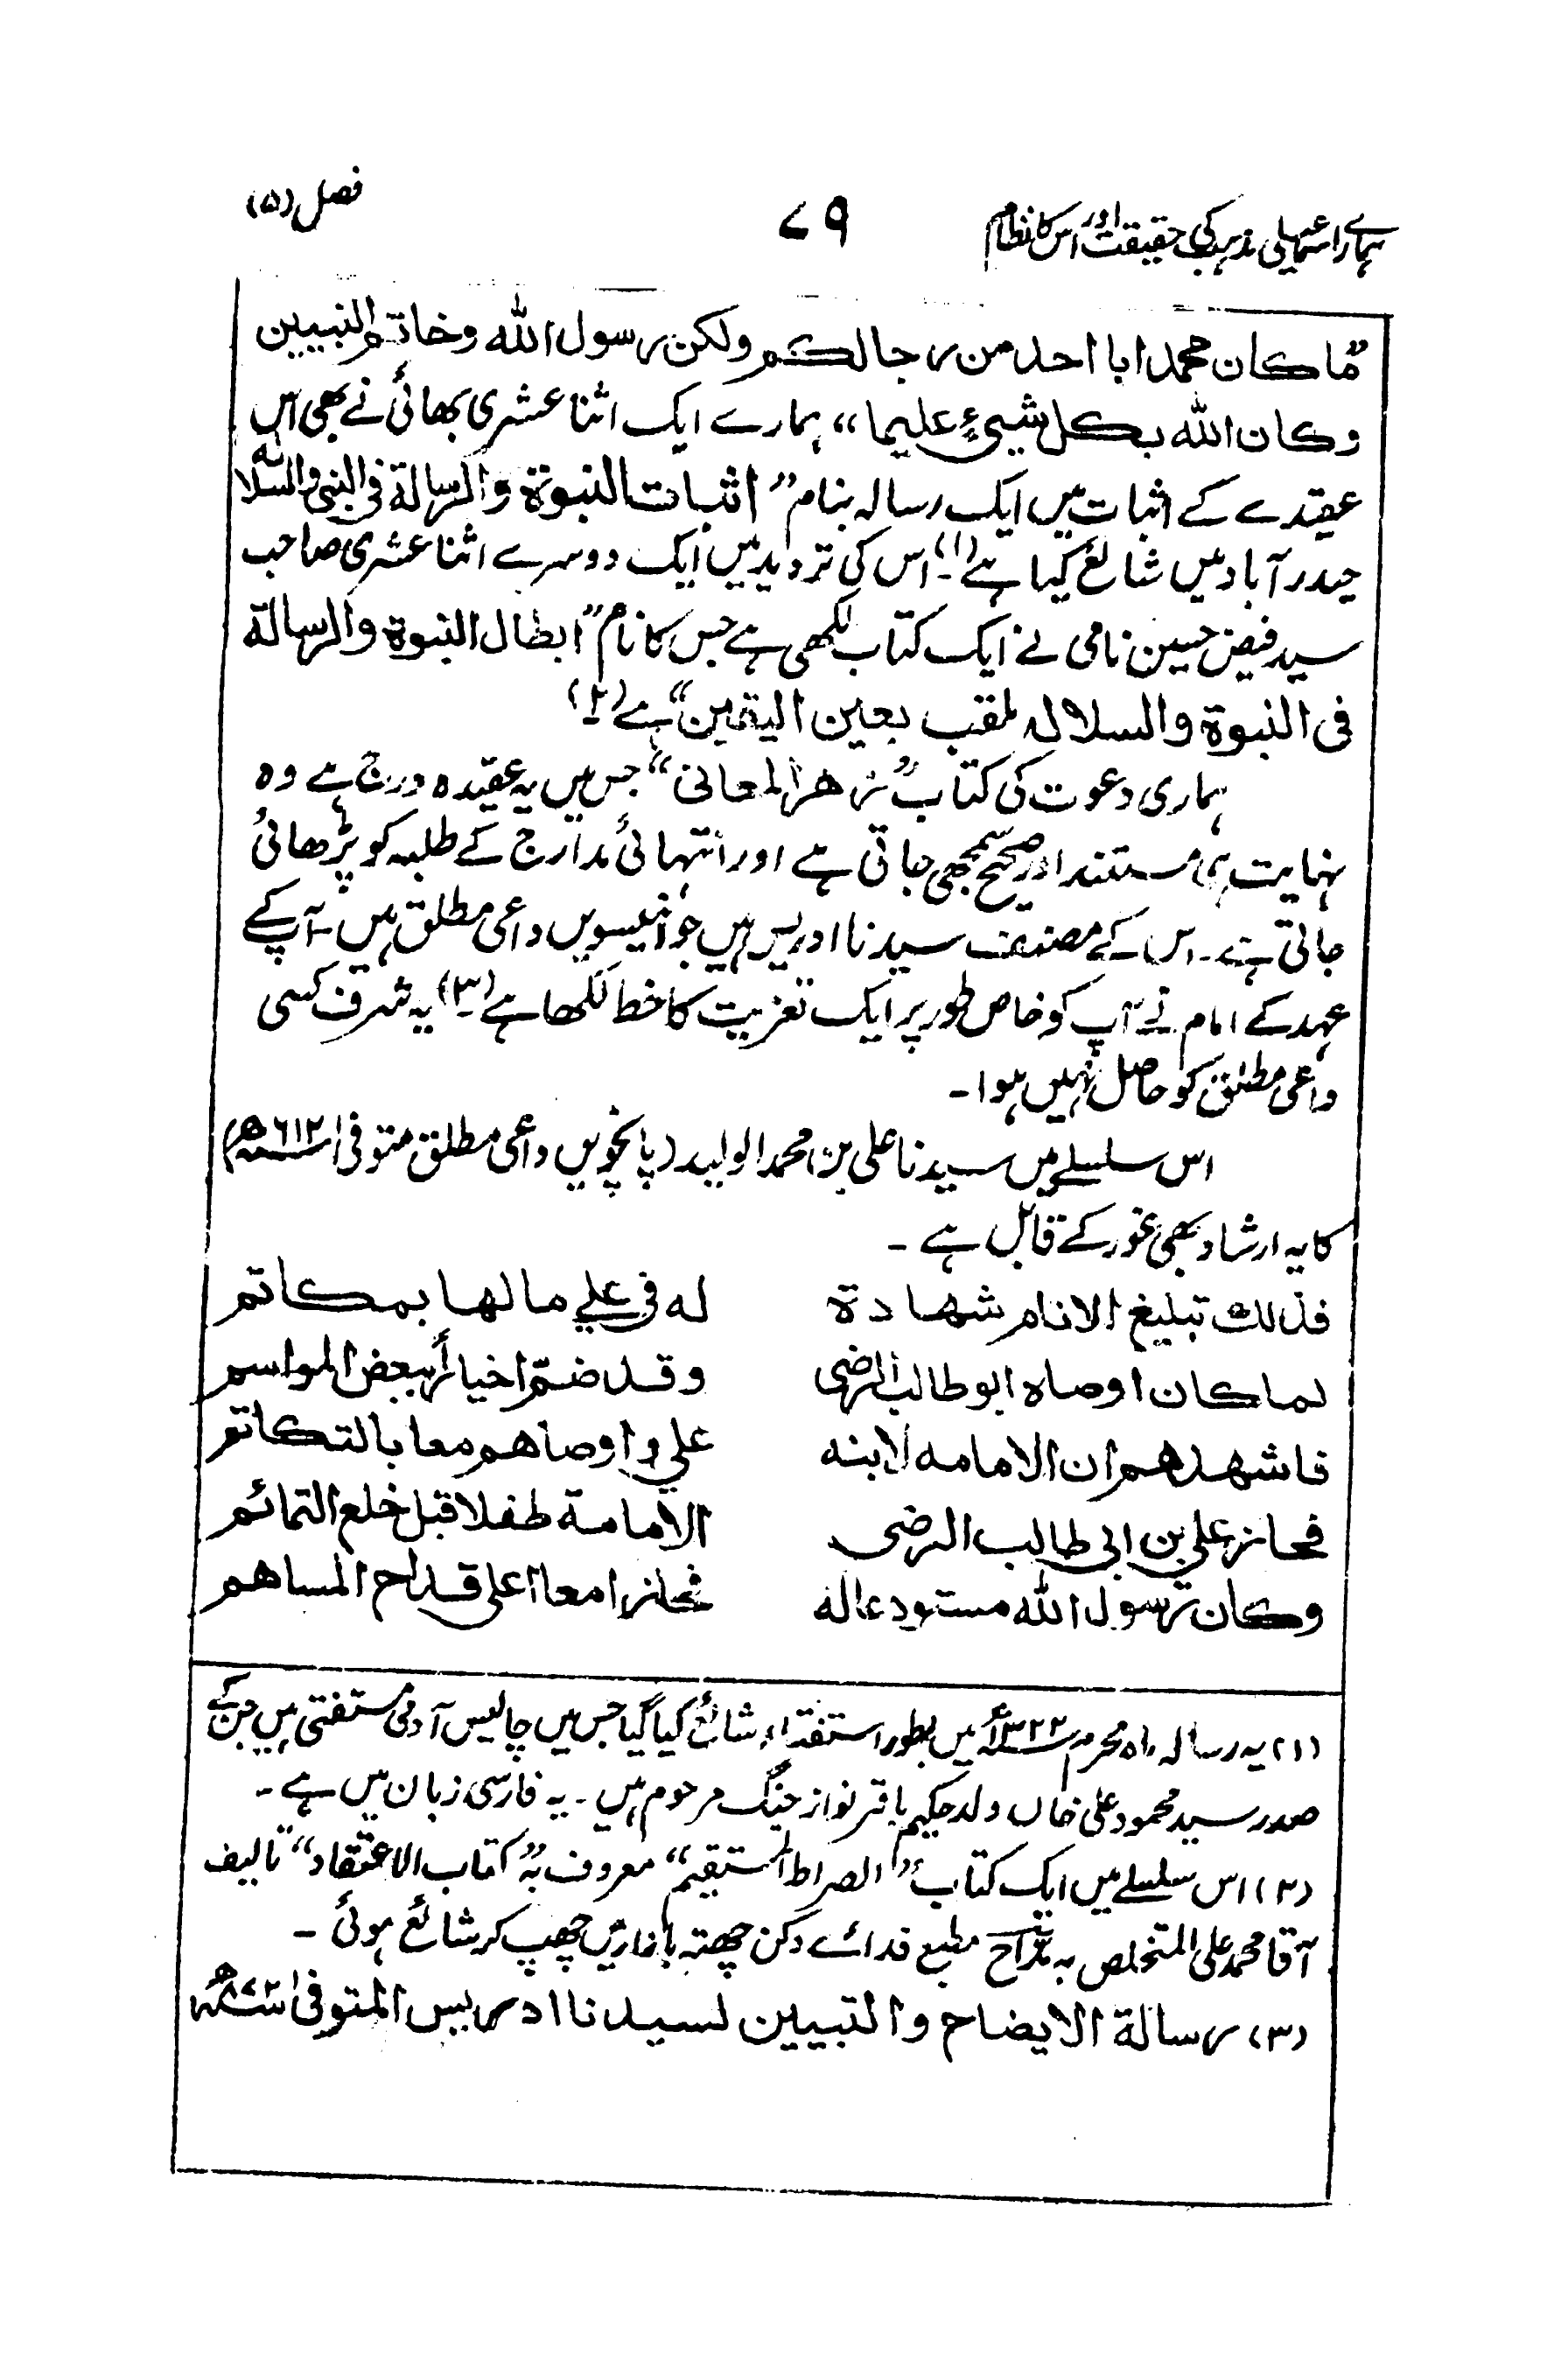 ہمارے اسماعیلی مذہب کی حقیقت اور اس کا نظام
۷۹
فصل (۵)
"ما کان محمد ابا احد من رجالکم ولکن رسول اللہ وخاتم النبیین
وکان اللہ بکل شیئ علیما" ہمارے ایک اثنا عشری بھائی نے بھی اس
عقیدے کے اثبات میں ایک رسالہ بنام "اثبات النبوۃ والرسالۃ فی النبی والسلالہ"
حیدرآباد میں شائع کیا ہے (۱)۔ اس کی تردید میں ایک دوسرے اثنا عشری صاحب
سید فیض حسین نامی نے ایک کتاب لکھی ہے جس کا نام "ابطال النبوۃ والرسالۃ
فی النبوۃ والسلالہ ملقب بعین الیقین" ہے (۲)
ہماری دعوت کی کتاب "زھر المعانی" جس میں یہ عقیدہ درج ہے وہ
نہایت ہی مستند اور صحیح سمجھی جاتی ہے اور انتہائی مدارج کے طلبہ کو پڑھائی
جاتی ہے۔ اس کے مصنف سیدنا ادریس ہیں جو انیسویں داعی مطلق ہیں۔ آپ کے
عہد کے امام نے آپ کو خاص طور پر ایک تعزیت کا خط لکھا ہے (۳) یہ شرف کسی
داعی مطلق کو حاصل نہیں ہوا۔
اس سلسلے میں سیدنا علی بن محمد الولید (پانچویں داعی مطلق متوفی ۶۱۲ھ)
کا یہ ارشاد بھی غور کے قابل ہے۔
فذلک تبلیغ الانام شھادۃ لہ فی علی ما لھا بمکاتم
لما کان اوصاہ ابو طالب الرضی وقد ضم اخیارا ببعض المواسم
فاشھدھم ان الامامہ لابنہ علی واوصاھم معا بالتکاتم
فحاز علی بن ابی طالب الرضی الامامۃ طفلا قبل خلع التمائم
وکان رسول اللہ مستودعا لہ فحازا معا اعلی قداح المساھم
(۱) یہ رسالہ ماہ محرم ۱۳۲۲ھ میں بطور استفتاء شائع کیا گیا جس میں چالیس آدمی مستفتی ہیں جن کے
صدر سید محمود علی خاں ولد حکیم باقر نواز جنگ مرحوم ہیں۔ یہ فارسی زبان میں ہے۔
(۲) اس سلسلے میں ایک کتاب "الصراط المستقیم" معروف بہ "کتاب الاعتقاد" تالیف
آقا محمد علی المتخلص بہ مداح مطبع فدائے دکن چھتہ بازار میں چھپ کر شائع ہوئی۔
(۳) رسالۃ الایضاح والتبیین لسیدنا ادریس المتوفی ۸۷۲ھ